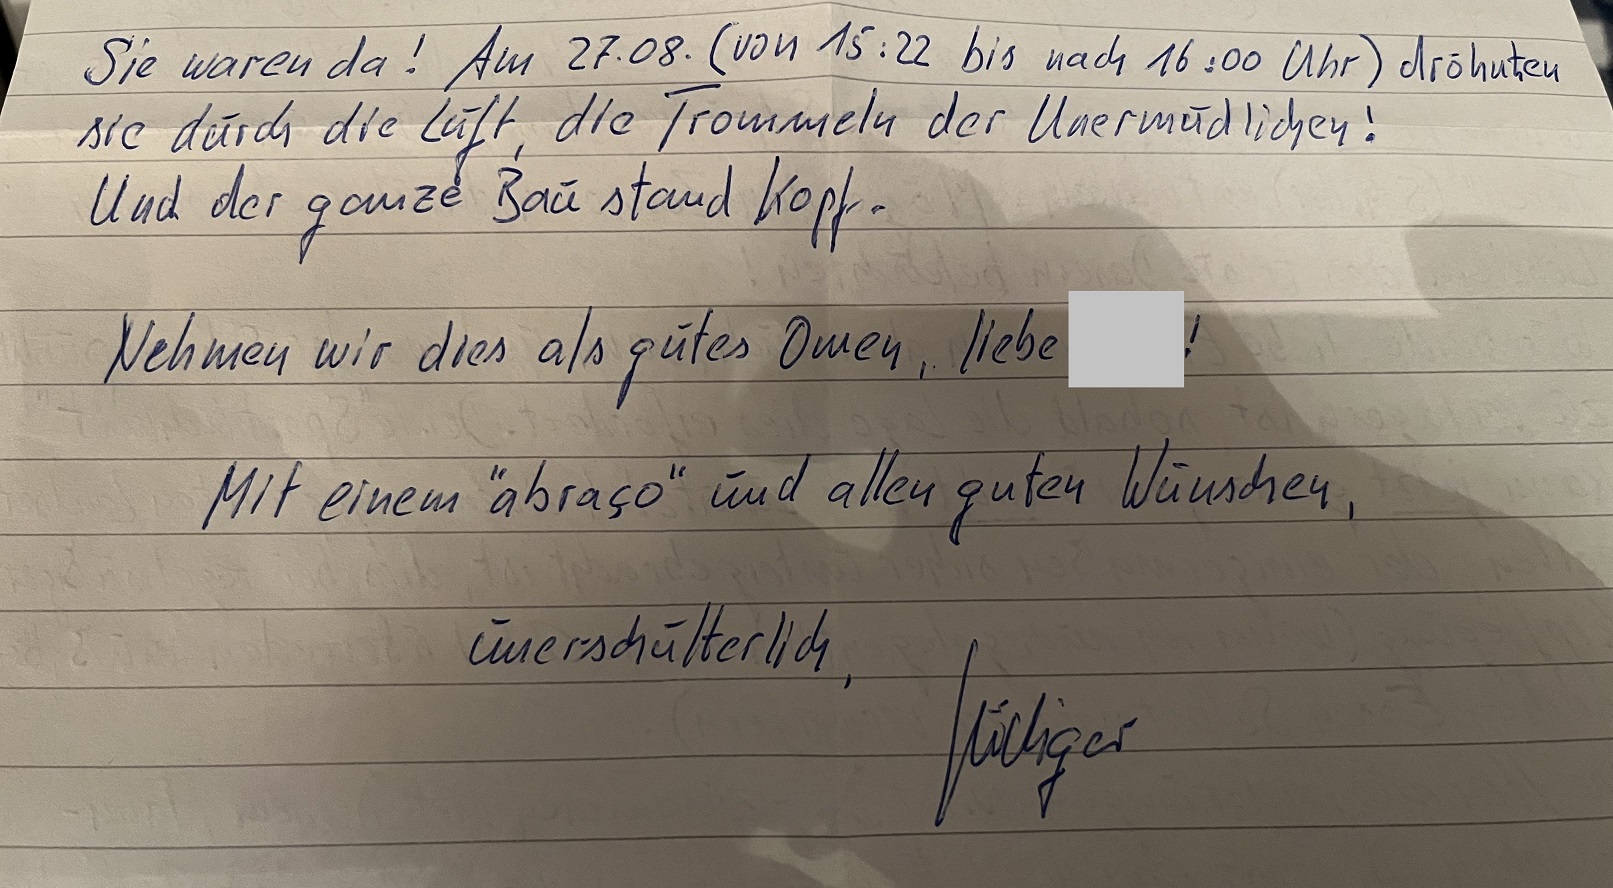 Sie waren da! Am 27.08. (von 15:22 bis nach 16:00 Uhr) dröhnten
sie durch die Luft, die Trommeln der Unermüdlichen!
Und der ganze Bau stand Kopf.
Nehmen wir dies als gutes Omen, liebe !
Mit einem "abraço" und allen guten Wünschen,
unerschütterlich,
Rüdiger